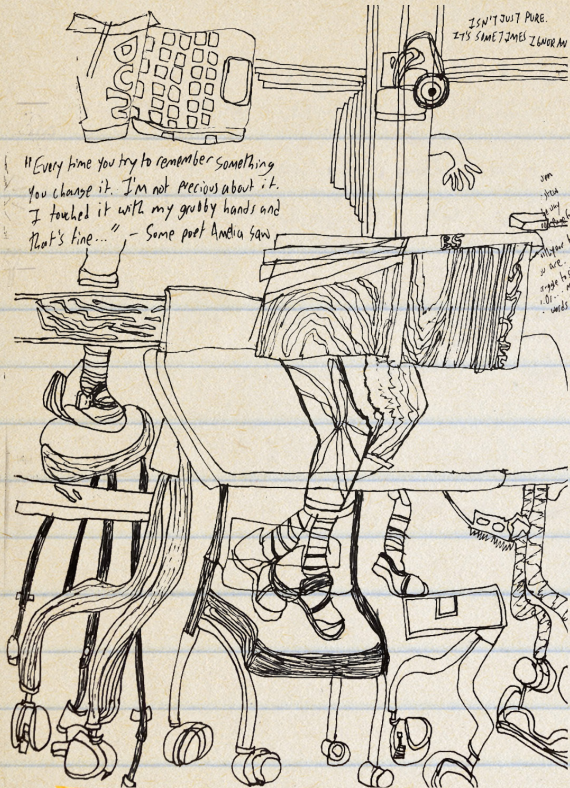 ISN'T JUST PURE.
IT'S SOMETIMES IGNORAN
"Every time you try to remember something
you change it. I'm not precious about it.
I touched it with my grubby hands and
that's fine..." - Some poet Amelia saw
your
are.
words